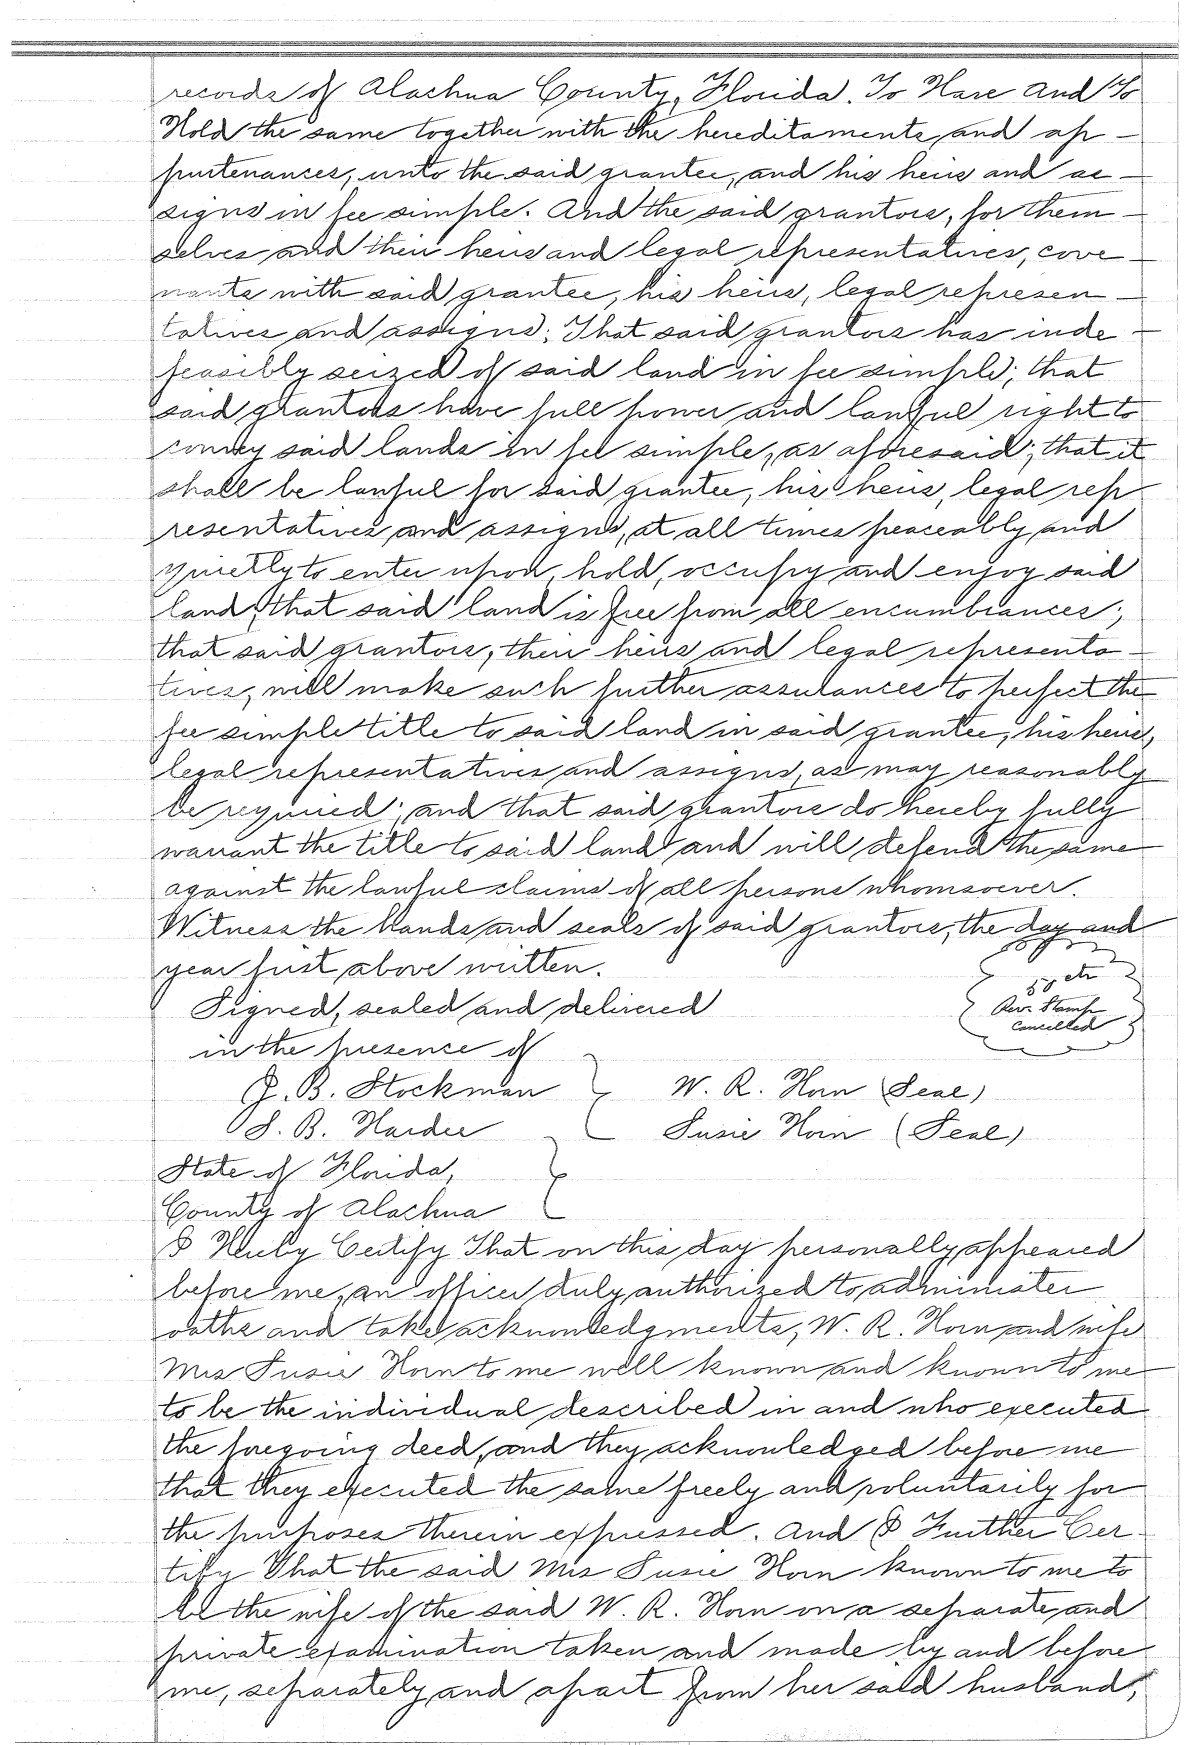 records of Alachua County, Florida. To Have And To
Hold the same together with the hereditaments and ap-
purtenances, unto the said grantee, and his heirs and as-
signs in fee simple. And the said grantors, for them-
selves and their heirs and legal representatives, cove-
nants with said grantee, his heirs, legal represen-
tatives and assigns: That said grantors has inde-
feasibly seized of said land in fee simple; that
said grantors have full power and lawful right to
convey said lands in fee simple, as aforesaid; that it
shall be lawful for said grantee, his heirs, legal rep-
resentatives and assigns, at all times peaceably and
quietly to enter upon, hold, occupy and enjoy said
land; that said land is free from all encumbrances;
that said grantors, their heirs and legal representa-
tives, will make such further assurances to perfect the
fee simple title to said land in said grantee, his heirs,
legal representatives and assigns, as may reasonably
be required; and that said grantors do hereby fully
warrant the title to said land and will defend the same
against the lawful claims of all persons whomsoever.
Witness the hands and seals of said grantors, the day and
year first above written.
Signed, sealed and delivered
in the presence of
55 cts
Rev. Stamp
Cancelled
J. B. Stockman W. R. Horn (Seal)
S. B. Hardee Susie Horn (Seal)
State of Florida,
County of Alachua
I Hereby Certify That on this day personally appeared
before me, an officer duly authorized to administer
oaths and take acknowledgments, W. R. Horn and wife
Mrs Susie Horn to me well known and known to me
to be the individual described in and who executed
the foregoing deed, and they acknowledged before me
that they executed the same freely and voluntarily for
the purposes therein expressed. And I Further Cer-
tify That the said Mrs Susie Horn known to me to
be the wife of the said W. R. Horn on a separate and
private examination taken and made by and before
me, separately and apart from her said husband,